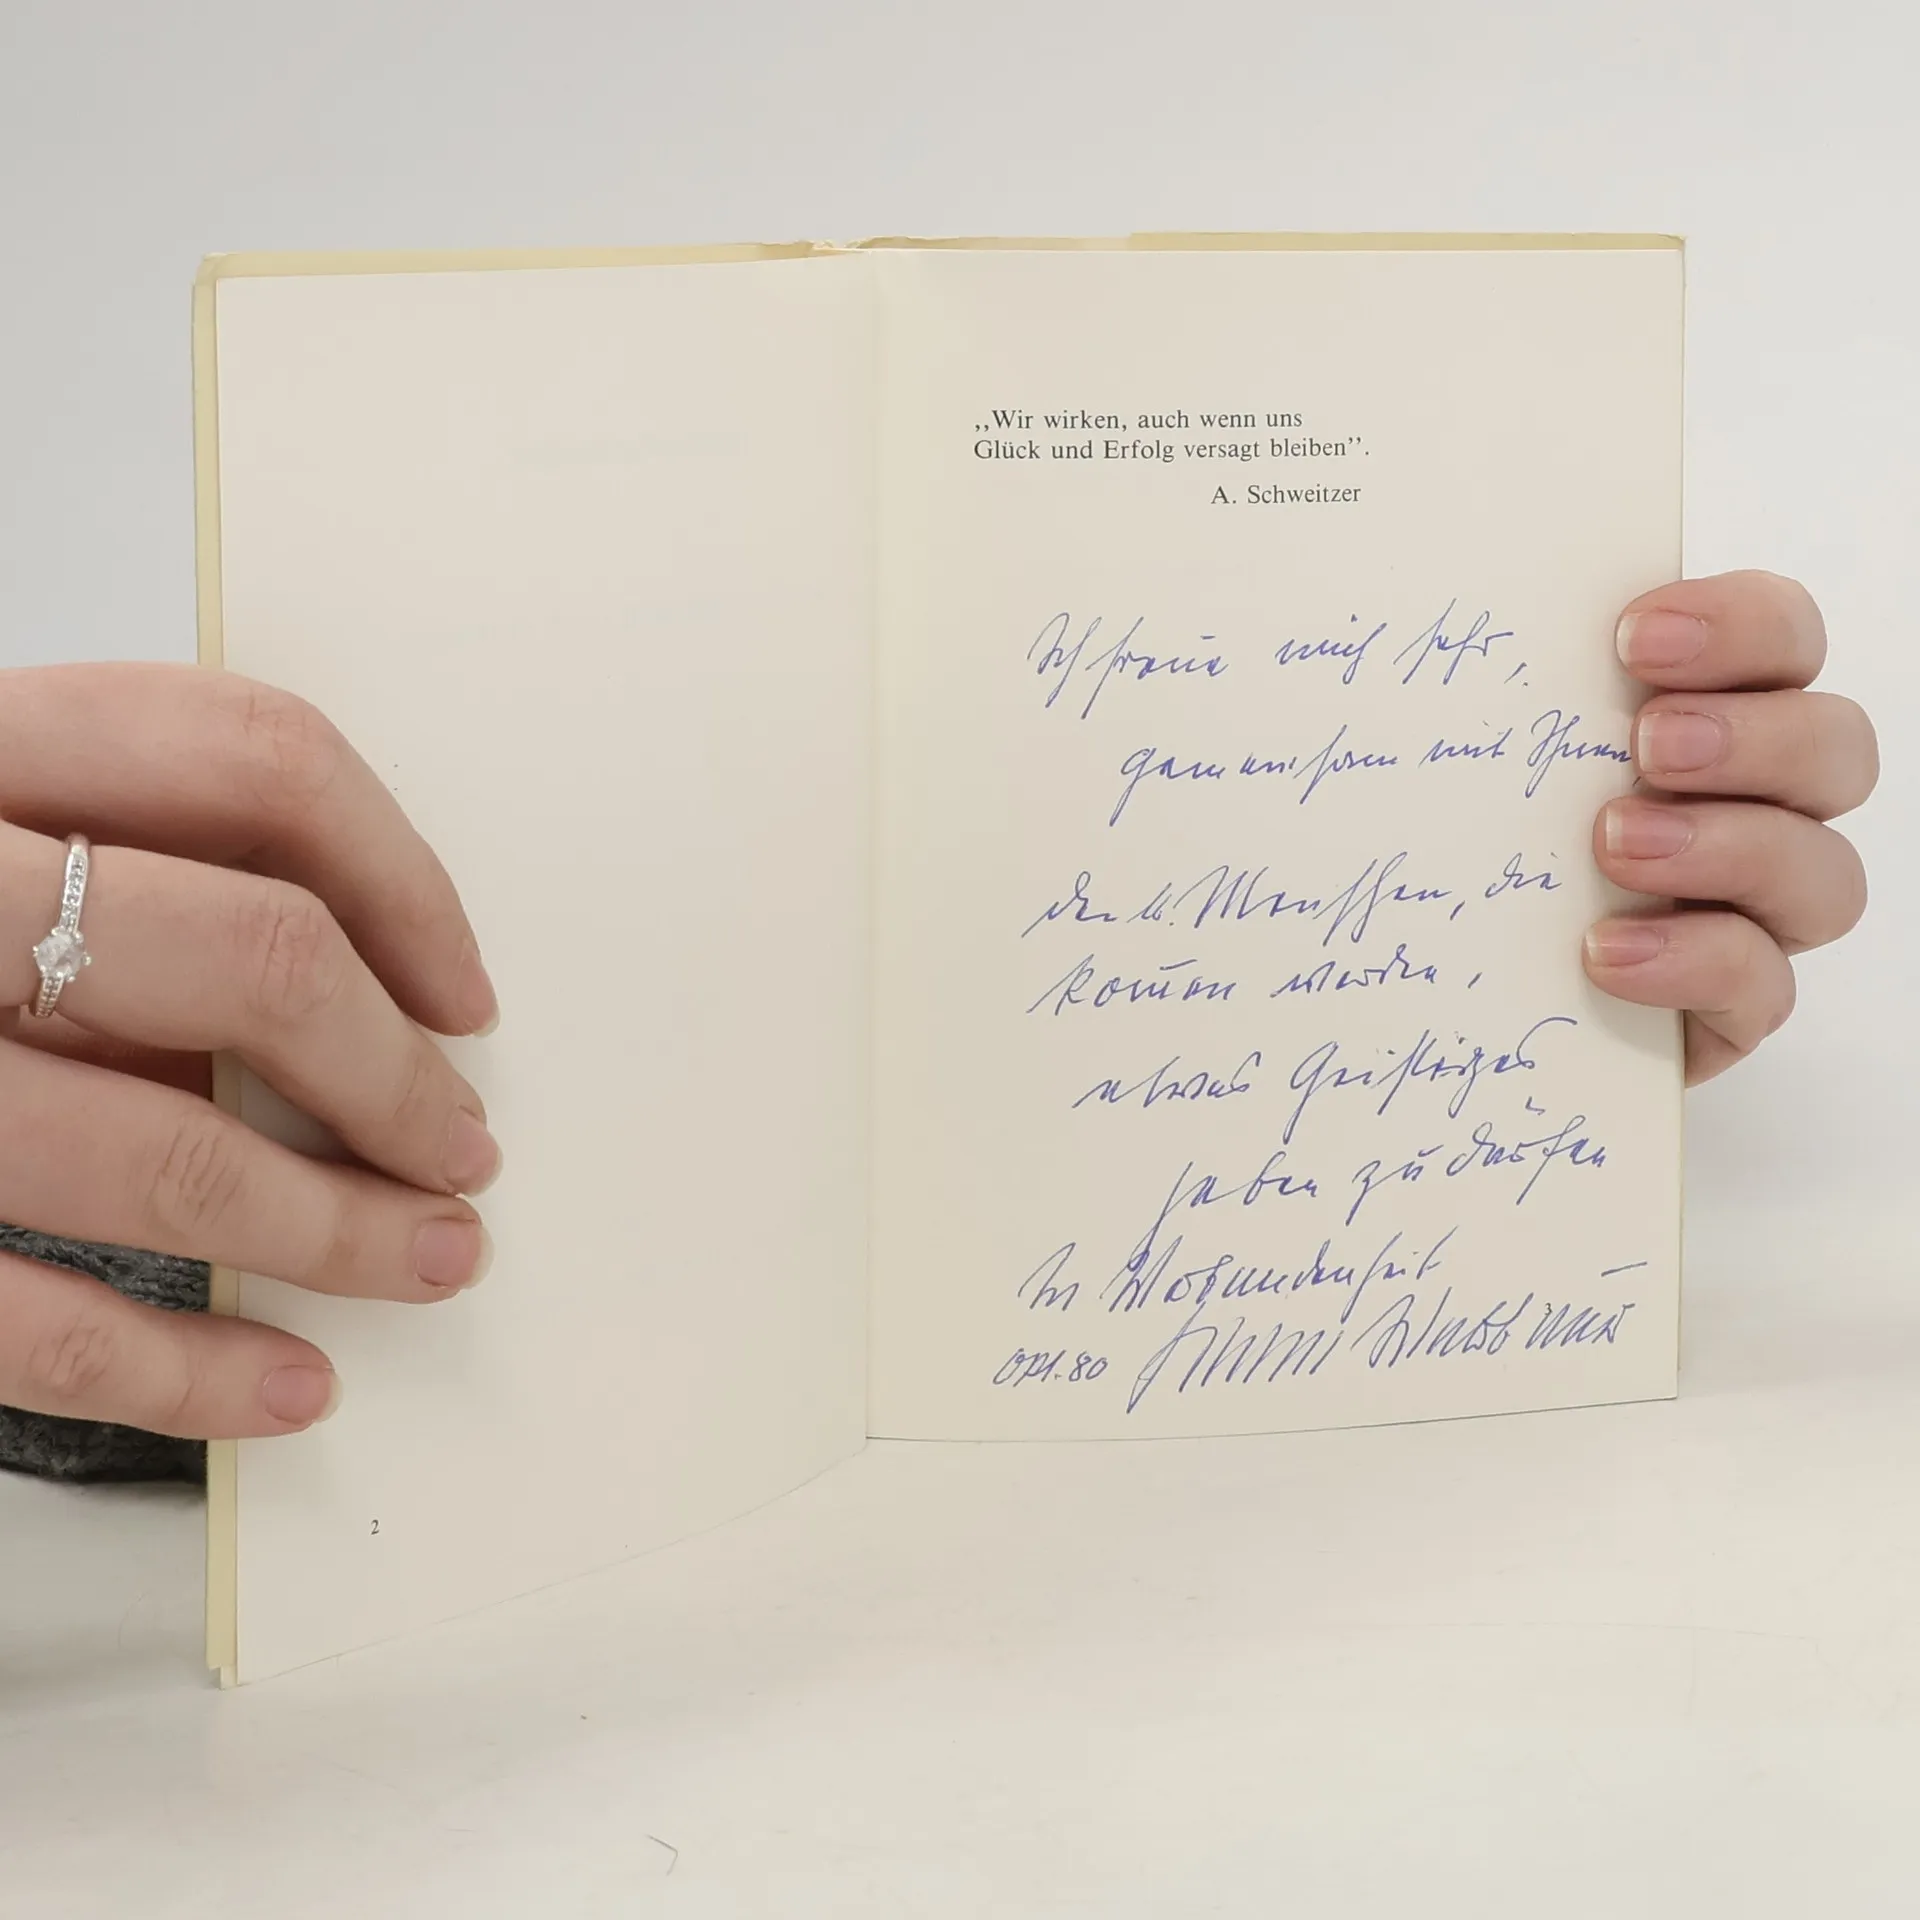 „Wir wirken, auch wenn uns
Glück und Erfolg versagt bleiben”.
A. Schweitzer
Ich freue mich sehr,
gemeinsam mit Ihnen,
Menschen, die
kom̄en werden,
etwas Geistiges
haben zu dürfen
In Verbundenheit
80
3
2